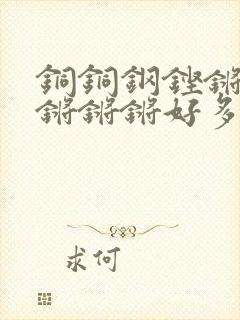 銅銅鋼鏗鏘
鏘鏘鏘好多
求何